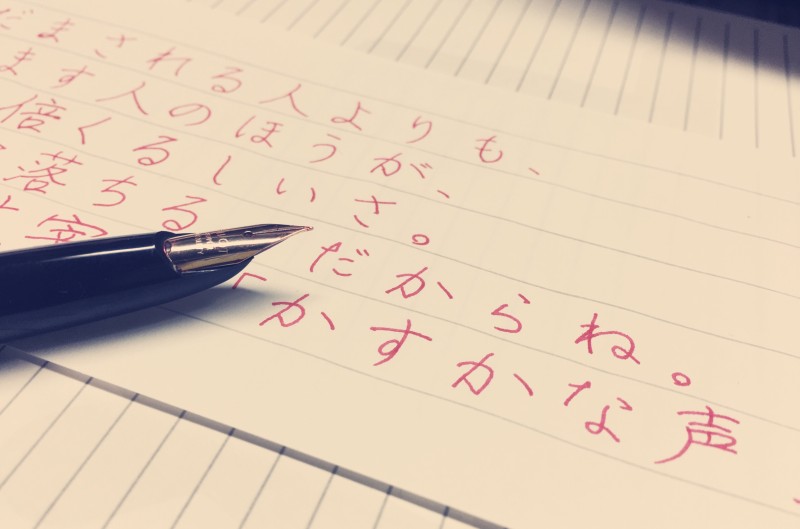 だまされる人よりも、
ます人のほうが、
倍くるしいさ。
落ちる だからね。
と かすかな声